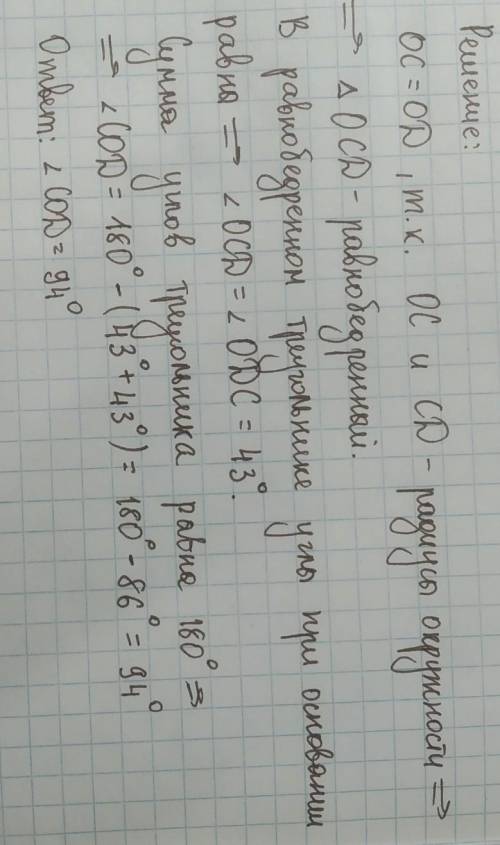 Решение:
OC = OD, т.к. OC и CD - радиусы окружности ⇒
⇒ △ OCD - равнобедренный.
В равнобедренном треугольнике углы при основании
равны ⇒ ∠ OCD = ∠ ODC = 43°.
Сумма углов треугольника равна 180° ⇒
⇒ ∠ COD = 180° - (43° + 43°) = 180° - 86° = 94°
Ответ: ∠ COD = 94°